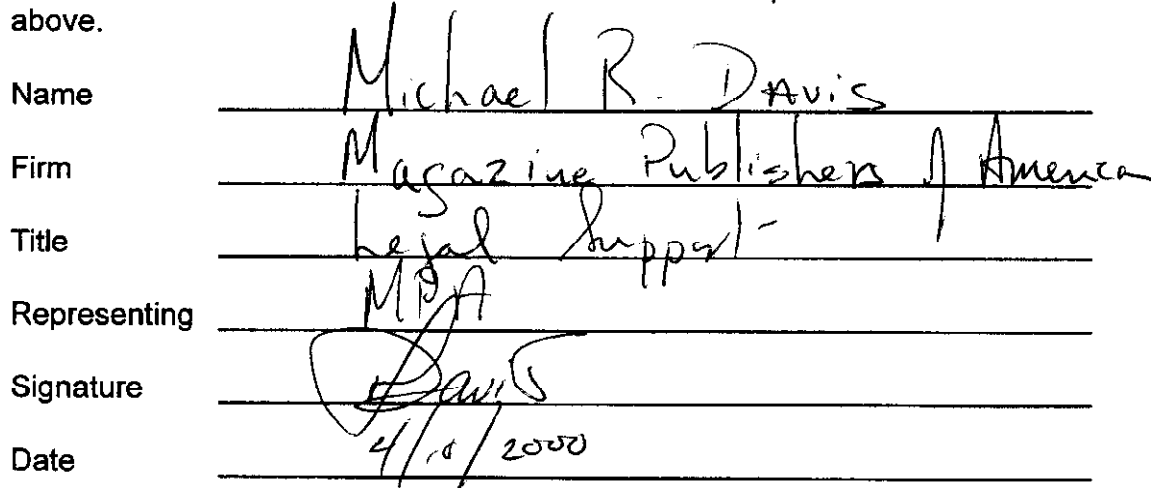 above.
Name Michael R. Davis
Firm Magazine Publishers of America
Title Legal Support
Representing MPA
Signature Davis
Date 4/10/2000